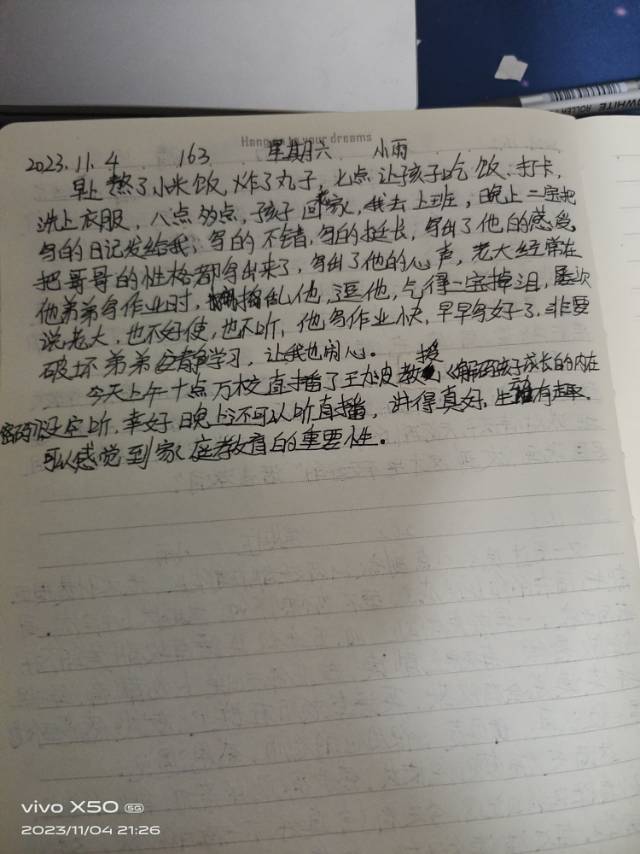 WHITE ROLLER
Hang on to your dreams
2023.11.4 163 星期六 小雨
早上熬了小米饭,炸了丸子,七点让孩子吃饭、打卡,
洗上衣服,八点多点,孩子回家,我去上班,晚上二宝把
写的日记发给我,写的不错,写的挺长,写出了他的感受,
把哥哥的性格都写出来了,写出了他的心声,老大经常在
他弟弟写作业时,捣乱他,逗他,气得二宝掉泪,屡次
说老大,也不好使,也不听,他写作业快,早早写好了,非要
破坏弟弟学习,让我也闹心。
今天上午十点万校直播了王灿皮教授《解码孩子成长的内在
密码》没空听,幸好晚上还可以听直播,讲得真好,生动有趣。
可以感觉到家庭教育的重要性。
vivo X50 5G
2023/11/04 21:26